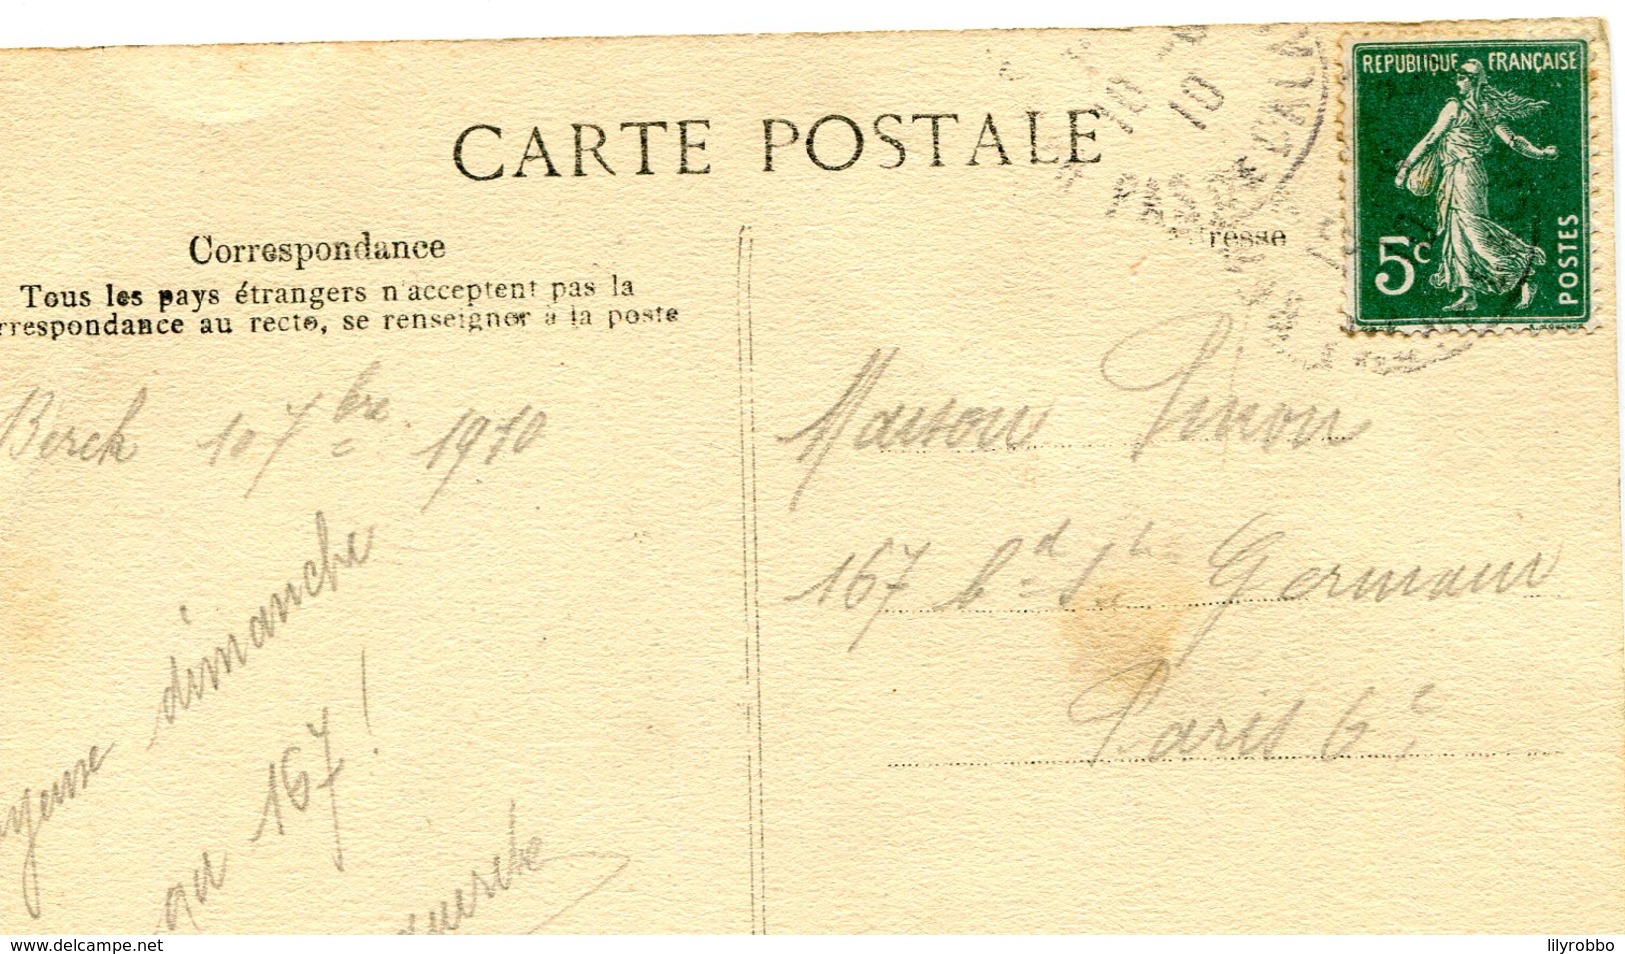 CARTE POSTALE
REPUBLIQUE FRANÇAISE
5c
POSTES
10 10
PAS DE CALAIS
Correspondance
Tous les pays étrangers n'acceptent pas la
rrespondance au recto, se renseigner à la poste
resse
Berck 10 7bre 1910
yeuse dimanche
au 167!
Maison Simon
167 bd St Germain
Paris 6e
www.delcampe.net
lilyrobbo